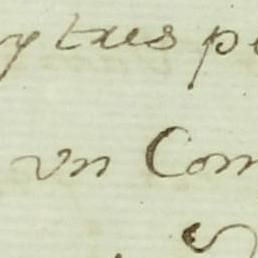 y tres p
vn Com